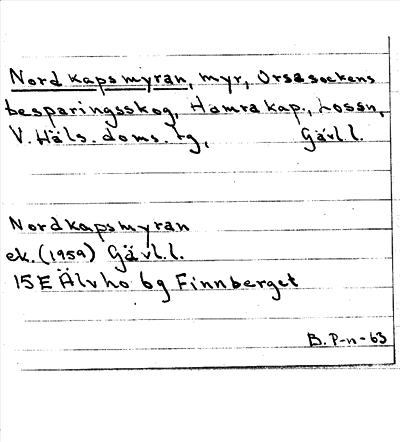 Nordkapsmyran, myr, Orsasockens
besparingsskog, Hamra kap., Lossn,
V. Häls. doms. tg, Gävl.l.
Nordkapsmyran
ek. (1959) Gävl.l.
15E Älvho 6g Finnberget
B. P-n-63